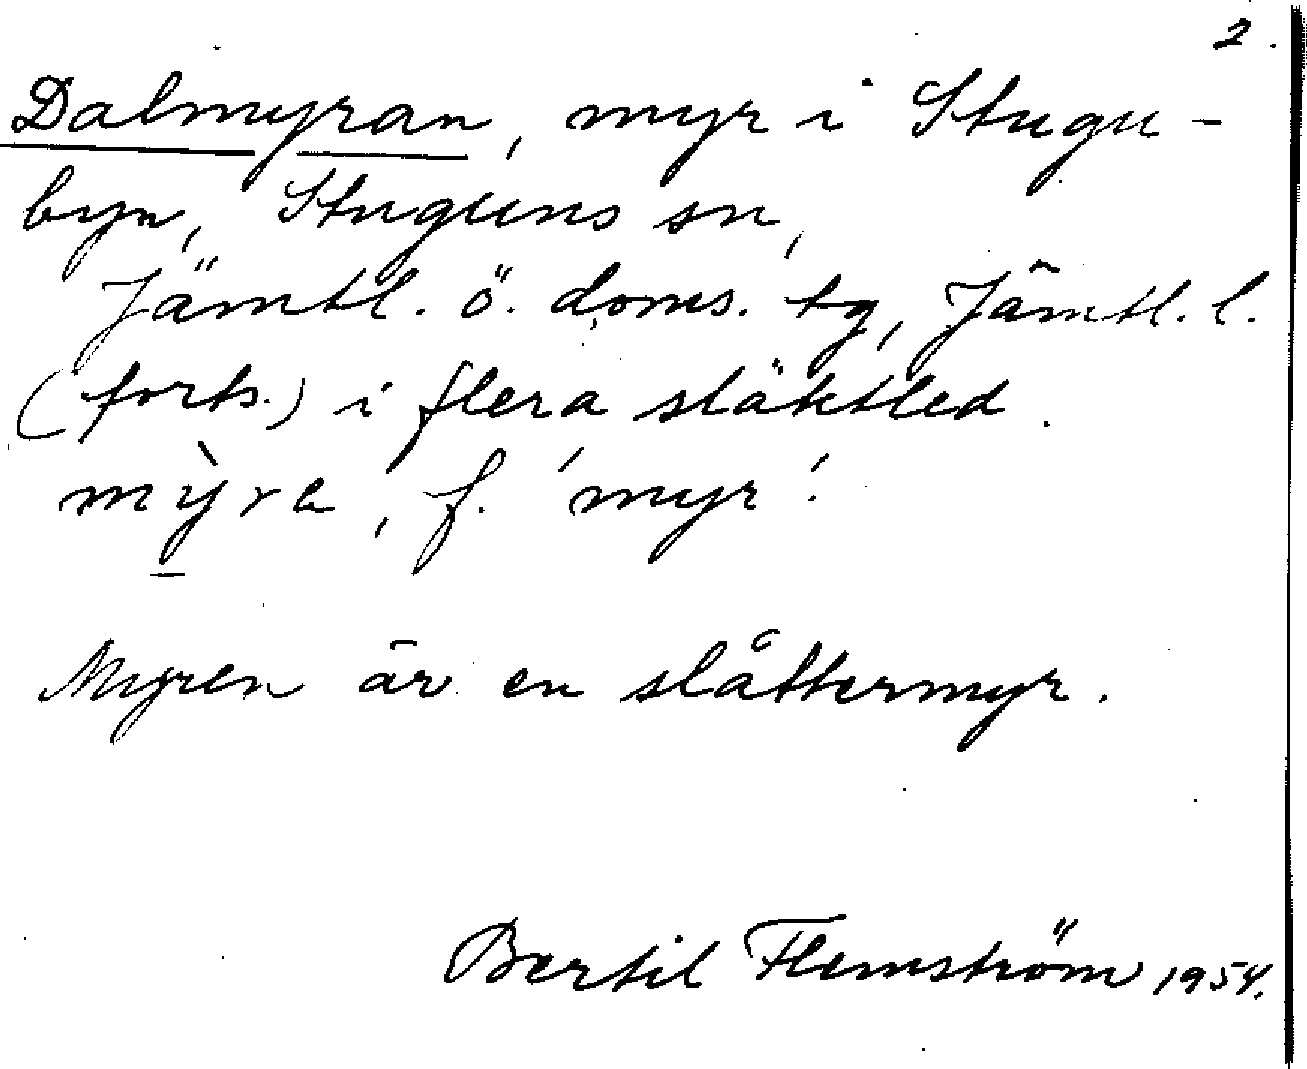 2.
Dalmyran, myr i Stugu-
byn, Stuguns sn,
Jämtl. ö. doms. tg, Jämtl. l.
(forts.) i flera släktled.
mỳra, f. 'myr'.
Myren är en slåttermyr.
Bertil Flemström 1954.